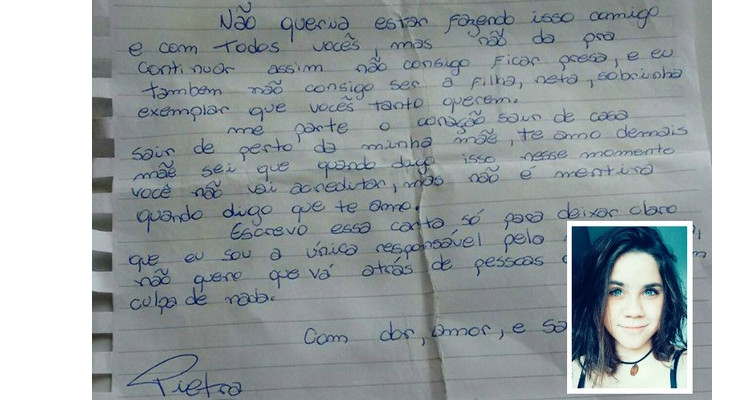 Não queria estar fazendo isso comigo
e com todos vocês, mas não da pra
continuar assim não consigo ficar presa, e eu
tambem não consigo ser a filha, neta, sobrinha
exemplar que vocês tanto querem.
me parte o coração sair de casa
sair de perto da minha mãe, te amo demais
mãe sei que quando digo isso nesse momento
você não vai acreditar, mas não é mentira
quando digo que te amo.
Escrevo essa carta só para deixar claro
que eu sou a única responsável pelo
não quero que vá atrás de pessoas
culpa de nada.
Com dor, amor, e
Pietra